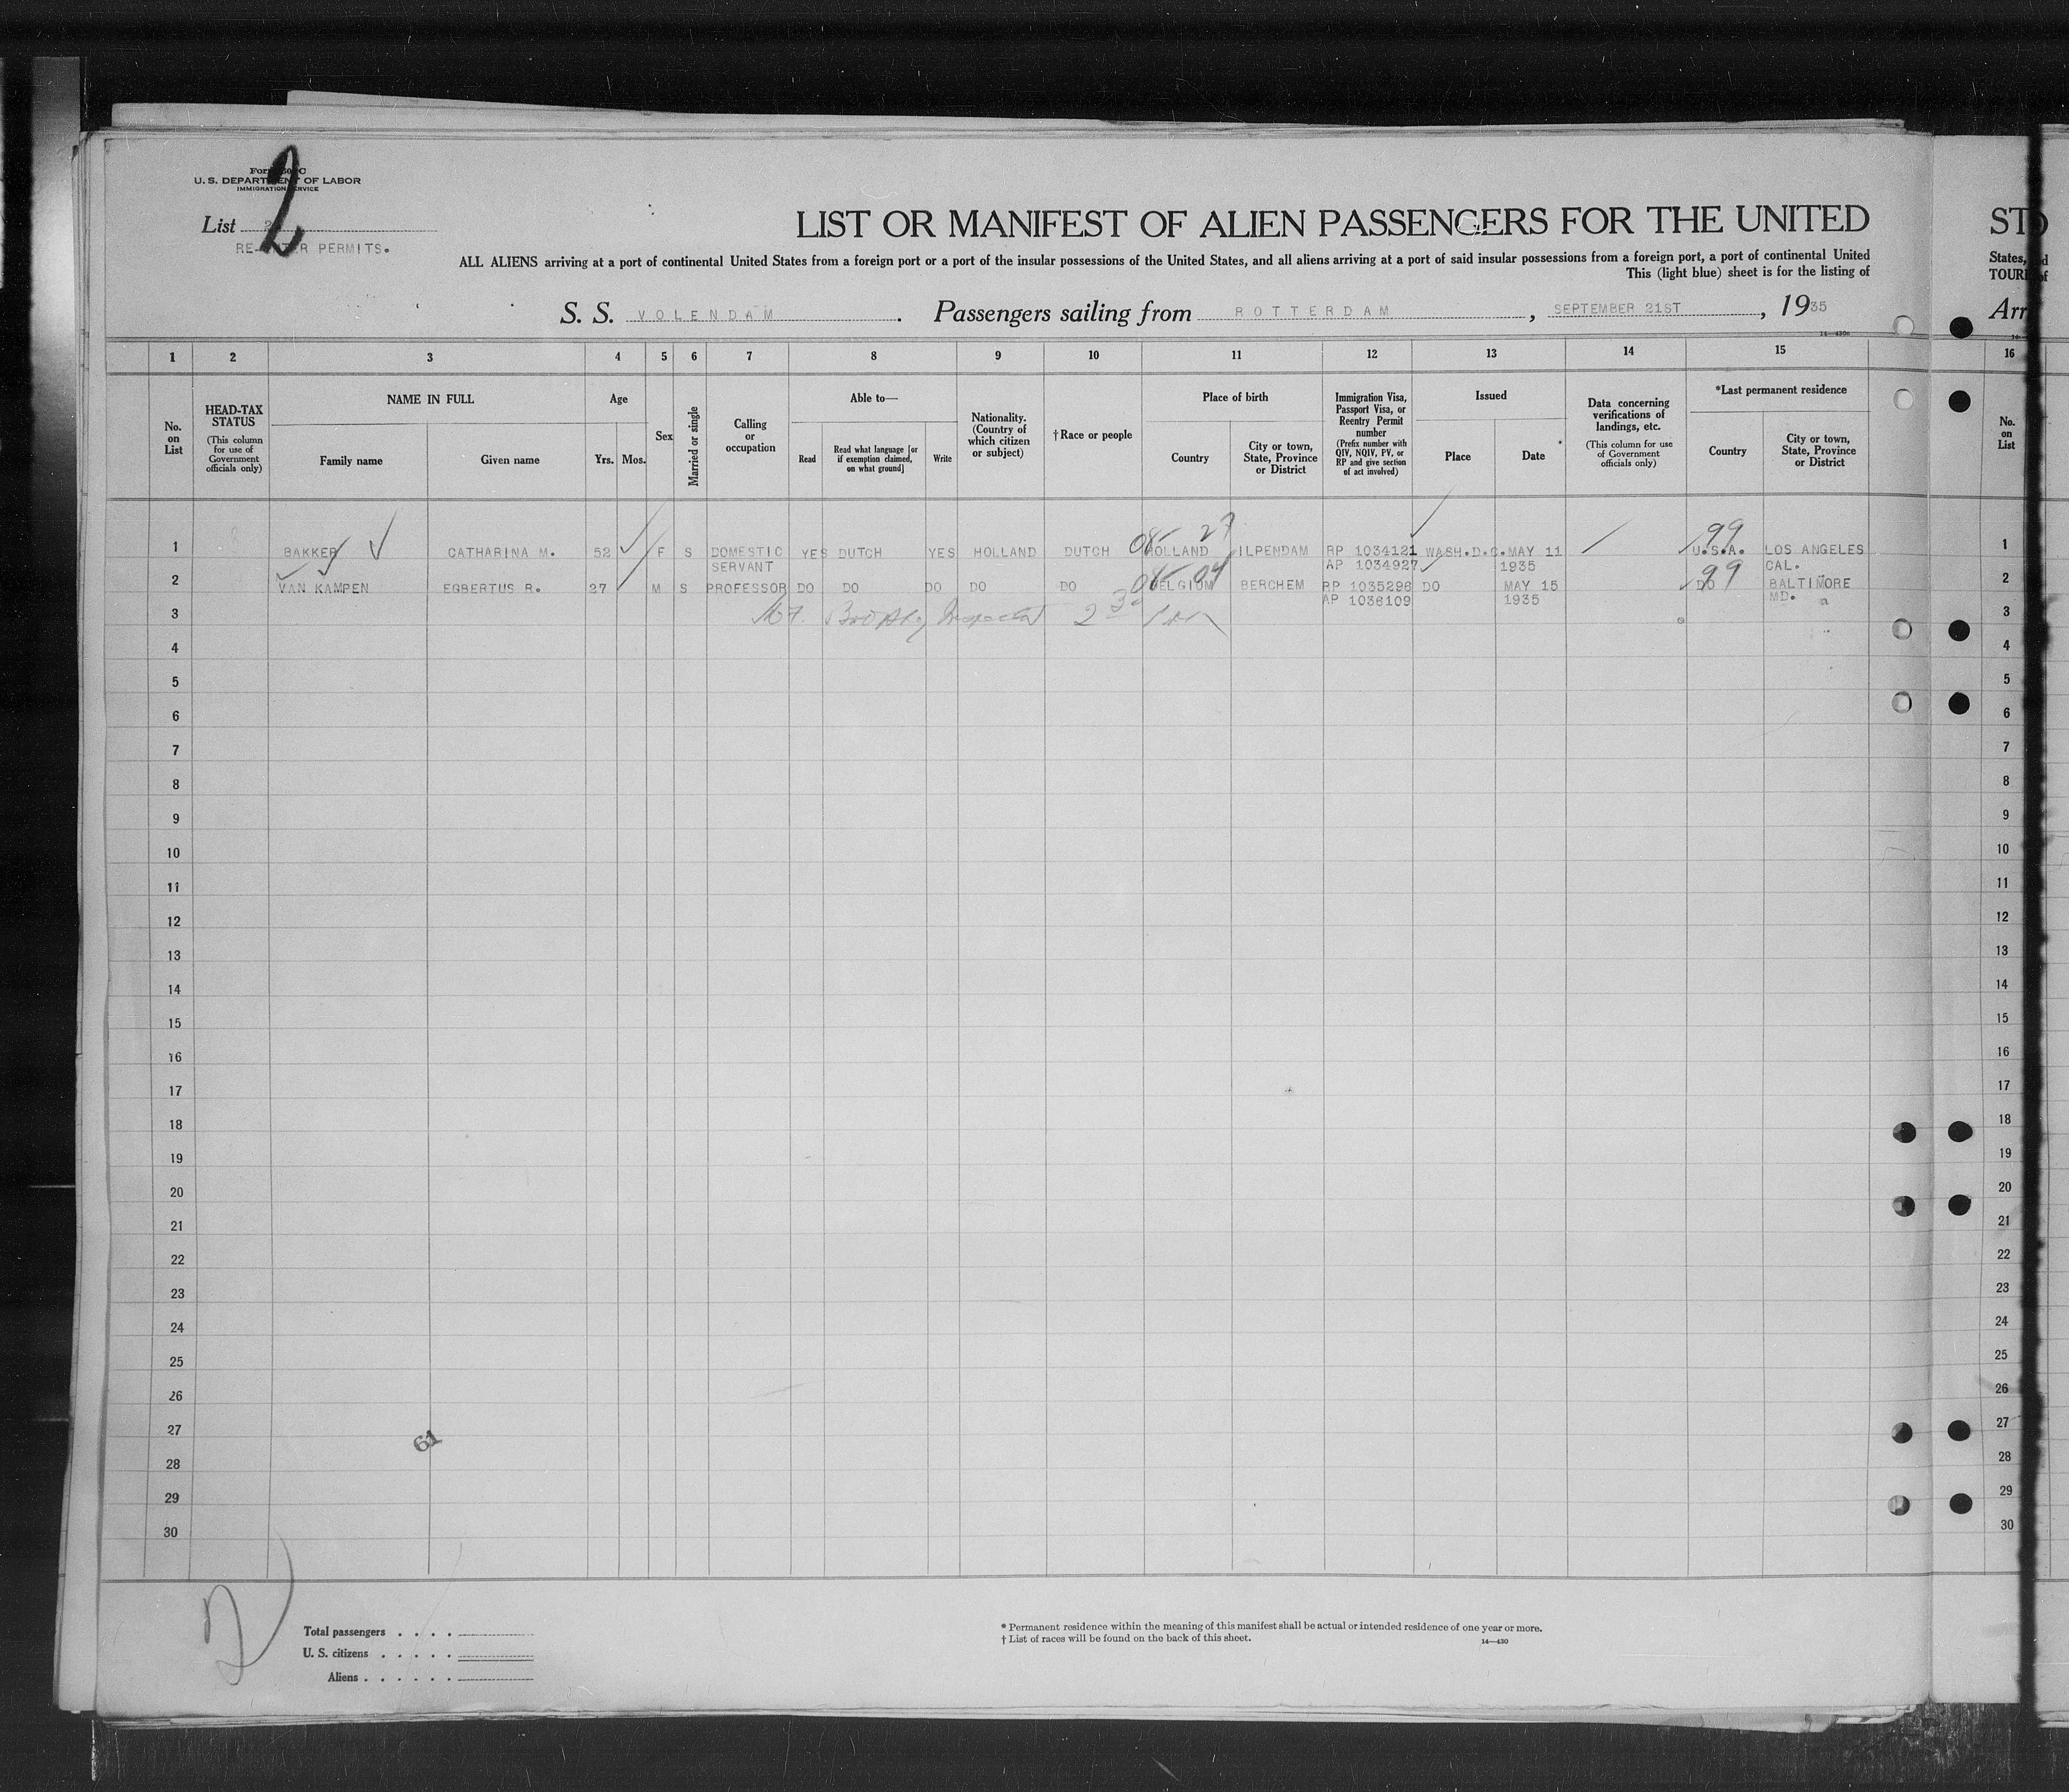 U. S. DEPARTMENT OF LABOR
IMMIGRATION SERVICE
2
List
RE-ENTER PERMITS.
LIST OR MANIFEST OF ALIEN PASSENGERS FOR THE UNITED
ALL ALIENS arriving at a port of continental United States from a foreign port or a port of the insular possessions of the United States, and all aliens arriving at a port of said insular possessions from a foreign port, a port of continental United
This (light blue) sheet is for the listing of
S. S. VOLENDAM . Passengers sailing from ROTTERDAM , SEPTEMBER 21ST , 1935
1 2 3 4 5 6 7 8 9 10 11 12 13 14 15 16
No. on List
HEAD-TAX STATUS (This column for use of Government officials only)
NAME IN FULL
Family name
Given name
Age
Yrs.
Mos.
Sex
Married or single
Calling or occupation
Able to—
Read
Read what language [or if exemption claimed, on what ground]
Write
Nationality. (Country of which citizen or subject)
†Race or people
Place of birth
Country
City or town, State, Province or District
Immigration Visa, Passport Visa, or Reentry Permit number (Prefix number with QIV, NQIV, PV, or RP and give section of act involved)
Issued
Place
Date
Data concerning verifications of landings, etc. (This column for use of Government officials only)
*Last permanent residence
Country
City or town, State, Province or District
No. on List
States,
TOUR
Arr
08- 27
99
1 BAKKER CATHARINA M. 52 F S DOMESTIC YES DUTCH YES HOLLAND DUTCH HOLLAND ILPENDAM RP 1034121 WASH.D.C. MAY 11 U.S.A. LOS ANGELES 1
SERVANT AP 1034927 1935 CAL.
08- 04
99
2 VAN KAMPEN EGBERTUS R. 27 M S PROFESSOR DO DO DO DO DO BELGIUM BERCHEM RP 1035296 DO MAY 15 DO BALTIMORE 2
AP 1036109 1935 MD.
3 Inspected 3
4 4
5 5
6 6
7 7
8 8
9 9
10 10
11 11
12 12
13 13
14 14
15 15
16 16
17 17
18 18
19 19
20 20
21 21
22 22
23 23
24 24
25 25
26 26
27 27
61
28 28
29 29
30 30
2
Total passengers . . . .
U. S. citizens . . . . .
Aliens . . . . . .
* Permanent residence within the meaning of this manifest shall be actual or intended residence of one year or more.
† List of races will be found on the back of this sheet.
14—430